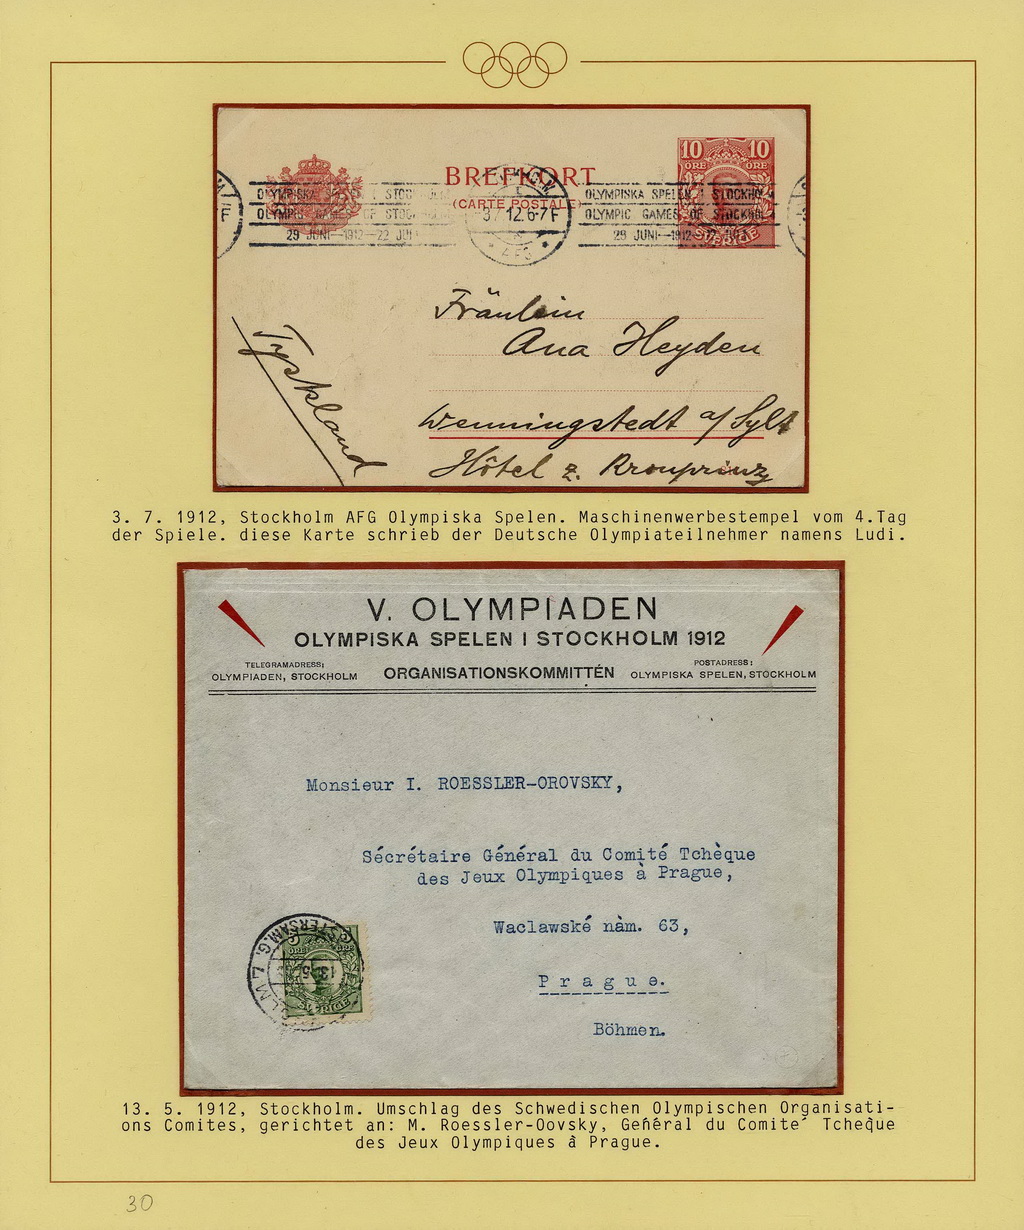 BREFKORT
(CARTE POSTALE)
10 10
ÖRE ÖRE
SVERIGE
OLYMPISKA STOC
OLYMPIC GAMES OF STOC
29 JUNI-1912-22 JULI
3/7 12.6-7F
AFG
OLYMPISKA SPELEN I STOCKHOLM
OLYMPIC GAMES OF STOCKHOLM
29 JUNI-1912-22 JULI
F
Tyskland
Fräulein
Ana Heyden
Wenningstedt a/Sylt
Hôtel z. Kronprinz
3. 7. 1912, Stockholm AFG Olympiska Spelen. Maschinenwerbestempel vom 4.Tag
der Spiele. diese Karte schrieb der Deutsche Olympiateilnehmer namens Ludi.
V. OLYMPIADEN
OLYMPISKA SPELEN I STOCKHOLM 1912
TELEGRAMADRESS;
OLYMPIADEN, STOCKHOLM
ORGANISATIONSKOMMITTÉN
POSTADRESS:
OLYMPISKA SPELEN, STOCKHOLM
Monsieur I. ROESSLER-OROVSKY,
Sécrétaire Général du Comité Tchèque
des Jeux Olympiques à Prague,
Waclawské nàm. 63,
Prague.
Böhmen.
5
ÖRE ÖRE
SVERIGE
ÖSTERMALM.G.
13.5
13. 5. 1912, Stockholm. Umschlag des Schwedischen Olympischen Organisati-
ons Comites, gerichtet an: M. Roessler-Oovsky, General du Comite´ Tcheque
des Jeux Olympiques à Prague.
30